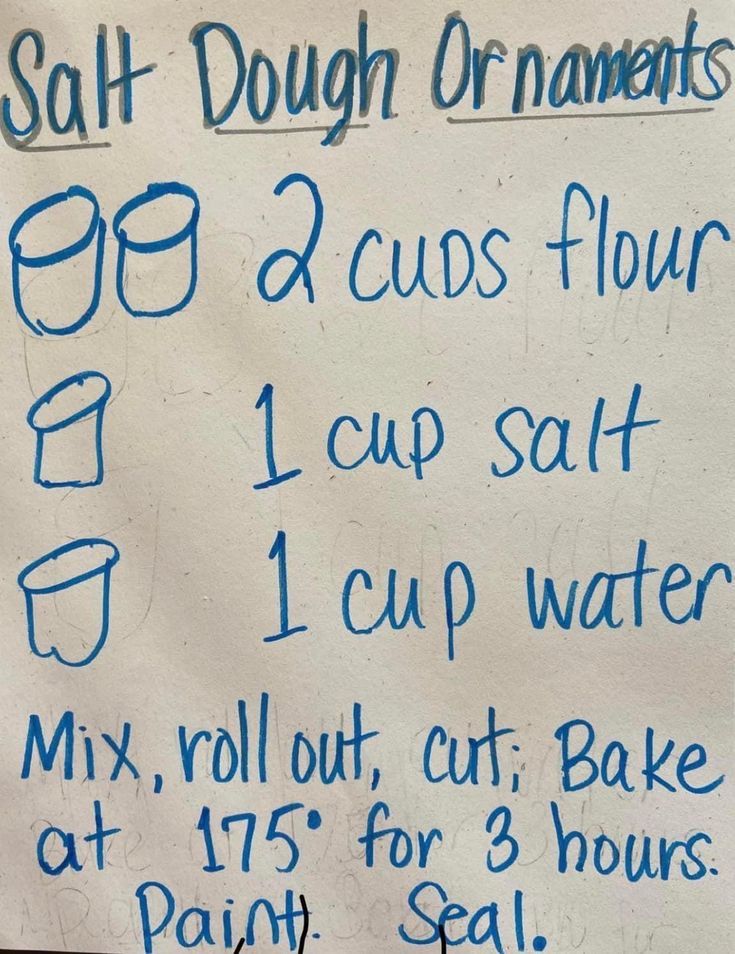 Salt Dough Ornaments
2 cups flour
1 cup salt
1 cup water
Mix, roll out, cut; Bake
at 175° for 3 hours.
Paint. Seal.